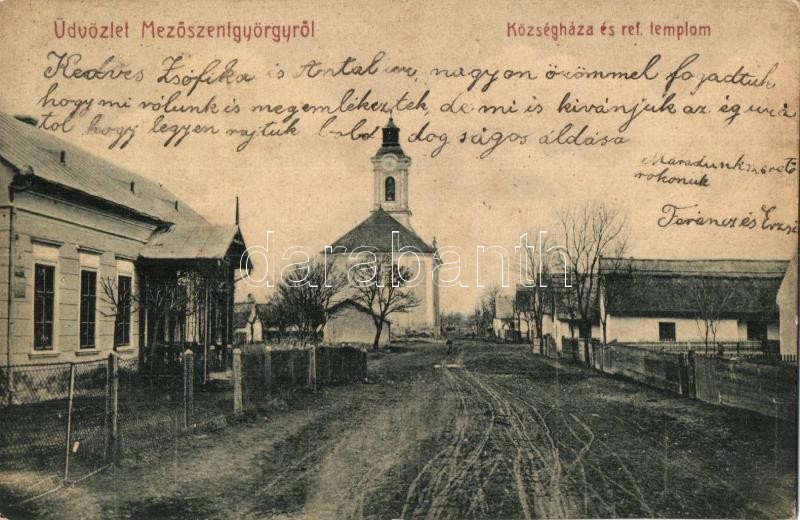 Üdvözlet Mezőszentgyörgyről
Községháza és ref. templom
Kedves Zsófika és Antal nagyon örömmel fogadtuk
hogy mi rólunk is megemlékeztek, de mi is kivánjuk az ég urá
tol hogy legyen rajtuk boldogságos áldása
Maradunk szerető
rokonuk
Ferencz és Erzsi
darabanth